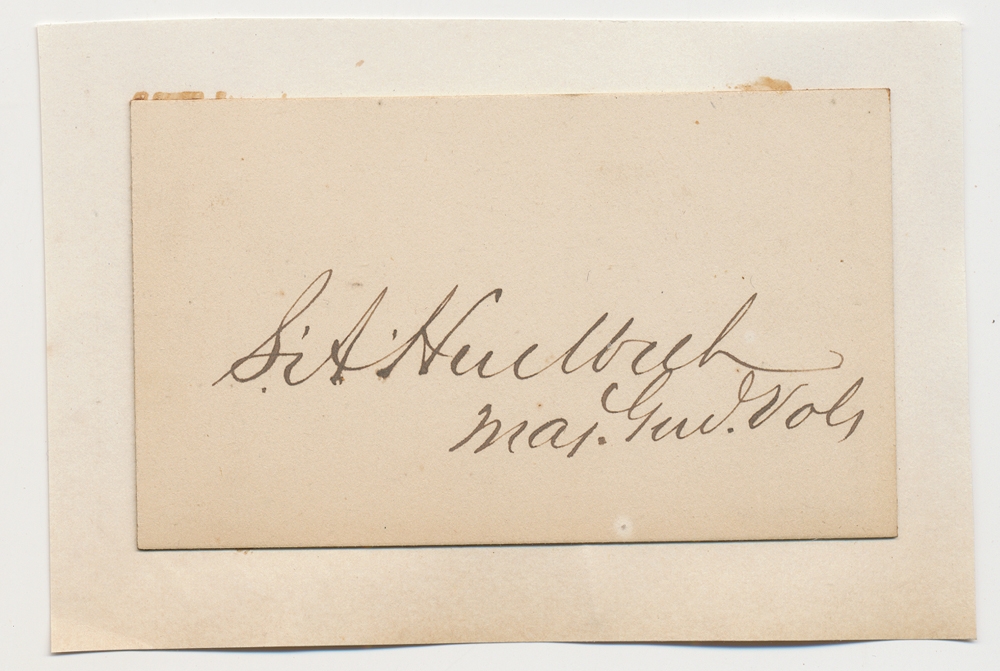 S. A. Hurlbut
Maj. Genl. Vols